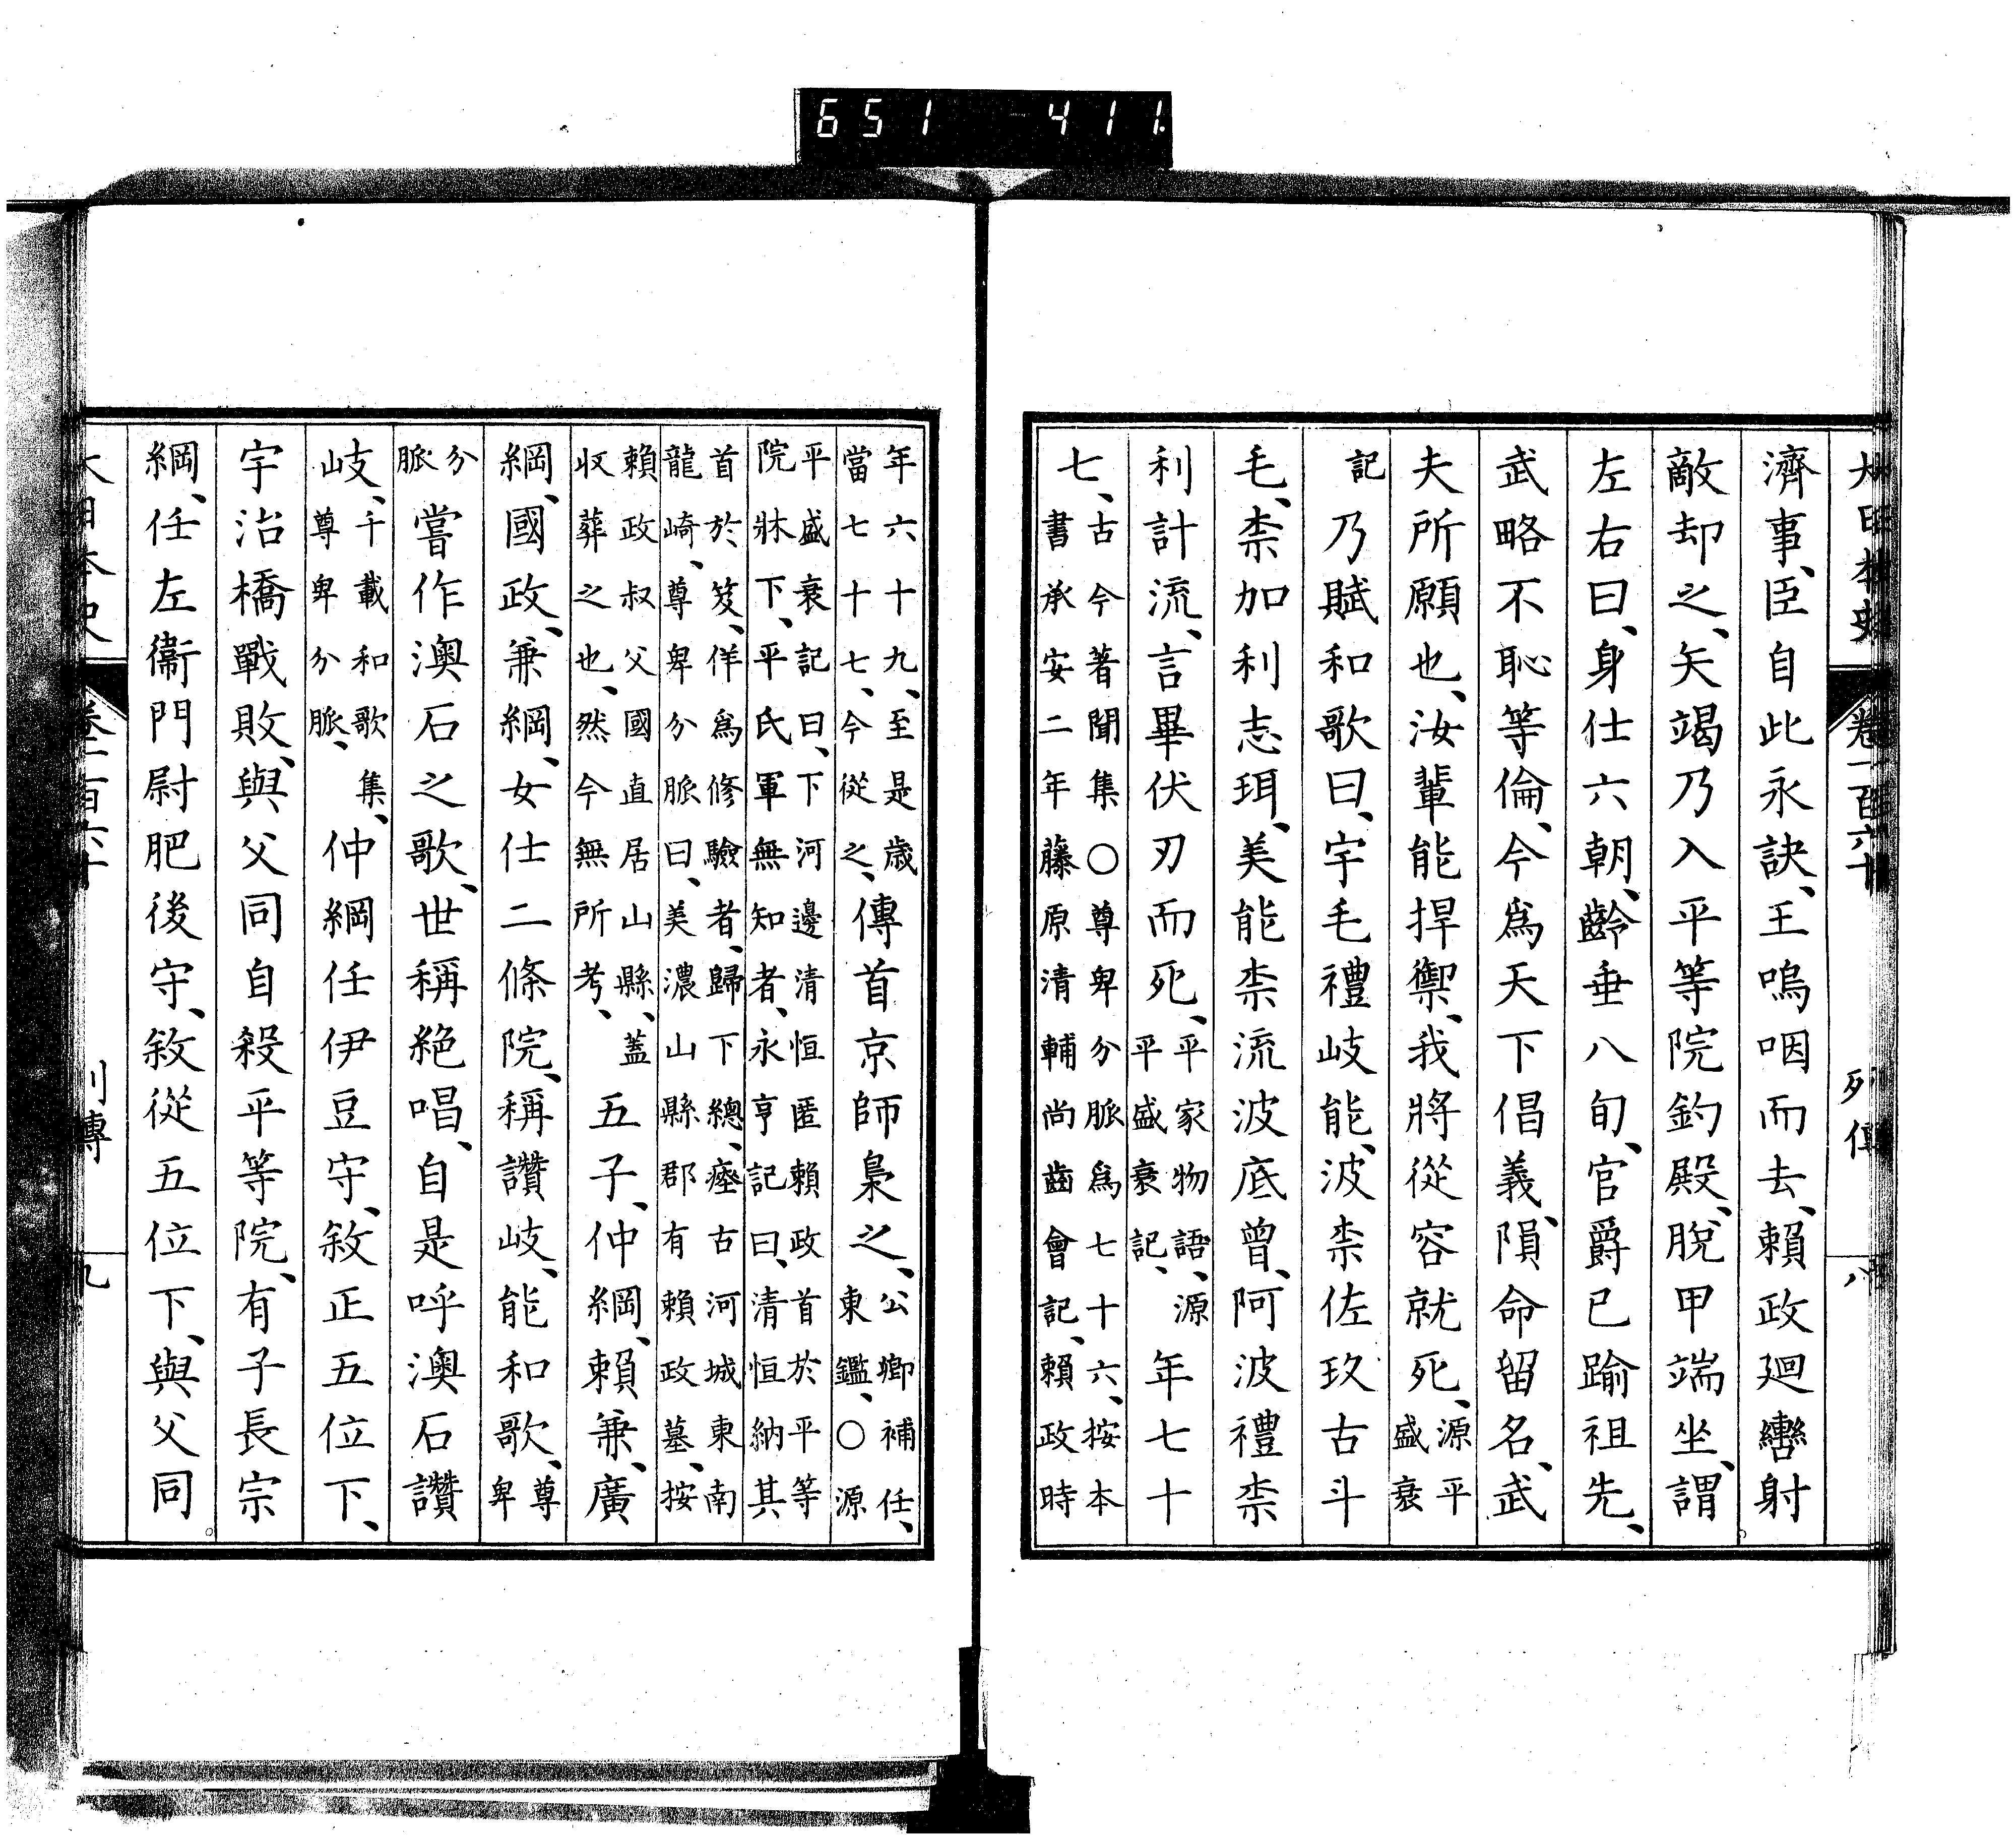 651 411.
大日本史 卷一百六十 列傳 八
濟事、臣自此永訣、王嗚咽而去、賴政廻轡射
敵却之、矢竭乃入平等院釣殿、脫甲端坐、謂
左右曰、身仕六朝、齡垂八旬、官爵已踰祖先、
武略不恥等倫、今爲天下倡義、隕命留名、武
夫所願也、汝輩能捍禦、我將從容就死、源平盛衰
記乃賦和歌曰、宇毛禮岐能、波柰佐玖古斗
毛、柰加利志珥、美能柰流波底曾、阿波禮柰
利計流、言畢伏刃而死、平家物語、源平盛衰記、年七十
七、古今著聞集○尊卑分脈爲七十六、按本書承安二年藤原清輔尚齒會記、賴政時
年六十九、至是歲當七十七、今從之、傳首京師梟之、公卿補任、東鑑、○源
平盛衰記曰、下河邊清恒匿賴政首於平等院牀下、平氏軍無知者、永亨記曰、清恒納其
首於笈、佯爲修驗者、歸下總、瘞古河城東南龍崎、尊卑分脈曰、美濃山縣郡有賴政墓、按
賴政叔父國直居山縣、蓋收葬之也、然今無所考、五子、仲綱、賴兼、廣
綱、國政、兼綱、女仕二條院、稱讚岐、能和歌、尊卑
分脈嘗作澳石之歌、世稱絶唱、自是呼澳石讚
岐、千載和歌集、尊卑分脈、仲綱任伊豆守、敘正五位下、
宇治橋戰敗、與父同自殺平等院、有子長宗
綱、任左衞門尉肥後守、敘從五位下、與父同
大日本史 卷一百六十 列傳 九